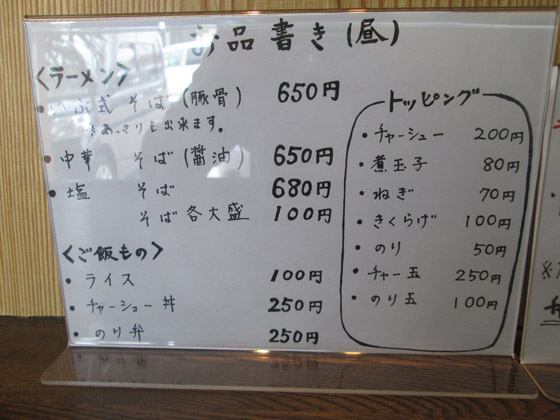 お品書き(昼)
<ラーメン>
• いぶ式 そば(豚骨) 650円
※あっさりも出来ます。
• 中華 そば(醤油) 650円
• 塩 そば 680円
そば各大盛 100円
<ご飯もの>
• ライス 100円
• チャーシュー丼 250円
• のり弁 250円
トッピング
• チャーシュー 200円
• 煮玉子 80円
• ねぎ 70円
• きくらげ 100円
• のり 50円
• チャー玉 250円
• のり玉 100円